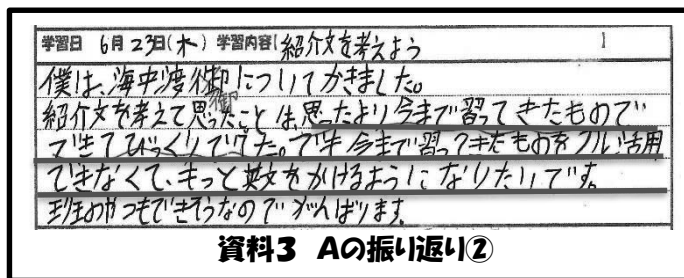 学習日 6月23日(木) 学習内容[紹介文を考えよう ]
僕は、海中渡御についてかきました。
御
紹介文を考えて思ったことは、思ったより今まで習ってきたもので
できてびっくりでした。でも今まで習ってきたものをフル活用
できなくて、もっと英文をかけるようになりたいです。
班のやつもできそうなのでがんばります。
資料3 Aの振り返り②